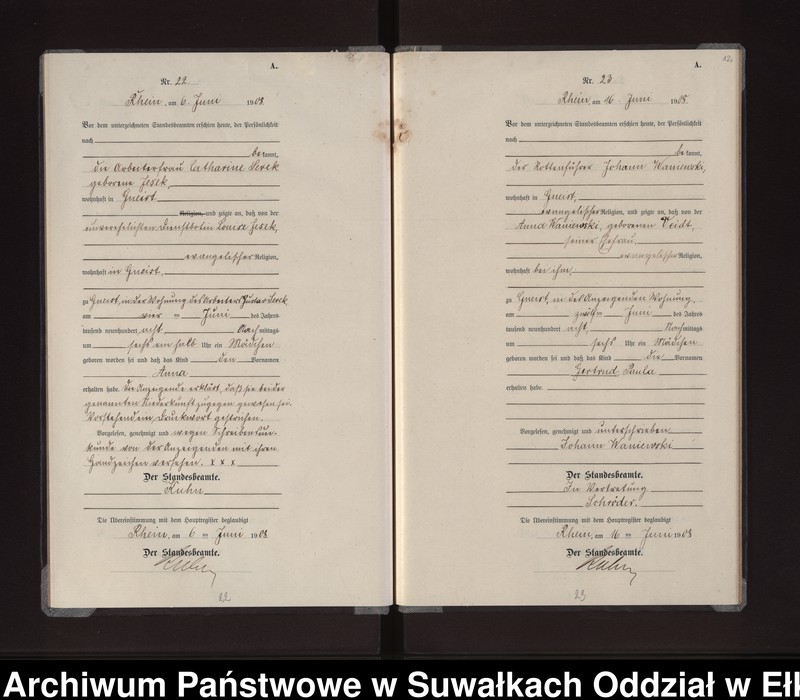 A.
Nr. 22
Rhein, am 6. Juni 1908.
Vor dem unterzeichneten Standesbeamten erschien heute, der Persönlichkeit
nach
bekannt,
die Arbeiterfrau Catharine Serek
geborene Jesek,
wohnhaft in Gneist,
Religion, und zeigte an, daß von der
unverehelichten Dienstbotin Louise Jesek,
evangelischer Religion,
wohnhaft in Gneist,
zu Gneist, in der Wohnung des Arbeiters Gustav Serek
am vier ten Juni des Jahres
tausend neunhundert acht Nachmittags
um sechs ein halb Uhr ein Mädchen
geboren worden sei und daß das Kind den Vornamen
Anna
erhalten habe. Die Anzeigende erklärt, daß sie bei der
genannten Niederkunft zugegen gewesen sei.
Vorstehend ein Druckwort gestrichen.
Vorgelesen, genehmigt und wegen Schreibensun-
kunde von der Anzeigenden mit ihren
Handzeichen versehen. x x x
Der Standesbeamte.
Kuhn
Die Übereinstimmung mit dem Hauptregister beglaubigt
Rhein, am 6 ten Juni 1908.
Der Standesbeamte.
Kuhn
22
A.
12.
Nr. 23
Rhein, am 16. Juni 1908.
Vor dem unterzeichneten Standesbeamten erschien heute, der Persönlichkeit
nach
bekannt,
der Rottenführer Johann Waniewski,
wohnhaft in Gneist,
evangelischer Religion, und zeigte an, daß von der
Anna Waniewski, geborenen Veidt,
seiner Ehefrau,
evangelischer Religion,
wohnhaft bei ihm,
zu Gneist, in des Anzeigenden Wohnung,
am zwölf ten Juni des Jahres
tausend neunhundert acht, Nachmittags
um sechs Uhr ein Mädchen
geboren worden sei und daß das Kind die Vornamen
Gertrud Paula
erhalten habe.
Vorgelesen, genehmigt und unterschrieben
Johann Waniewski
Der Standesbeamte.
In Vertretung
Schröder.
Die Übereinstimmung mit dem Hauptregister beglaubigt
Rhein, am 16 ten Juni 1908
Der Standesbeamte.
Kuhn
23
Archiwum Państwowe w Suwałkach Oddział w Eł